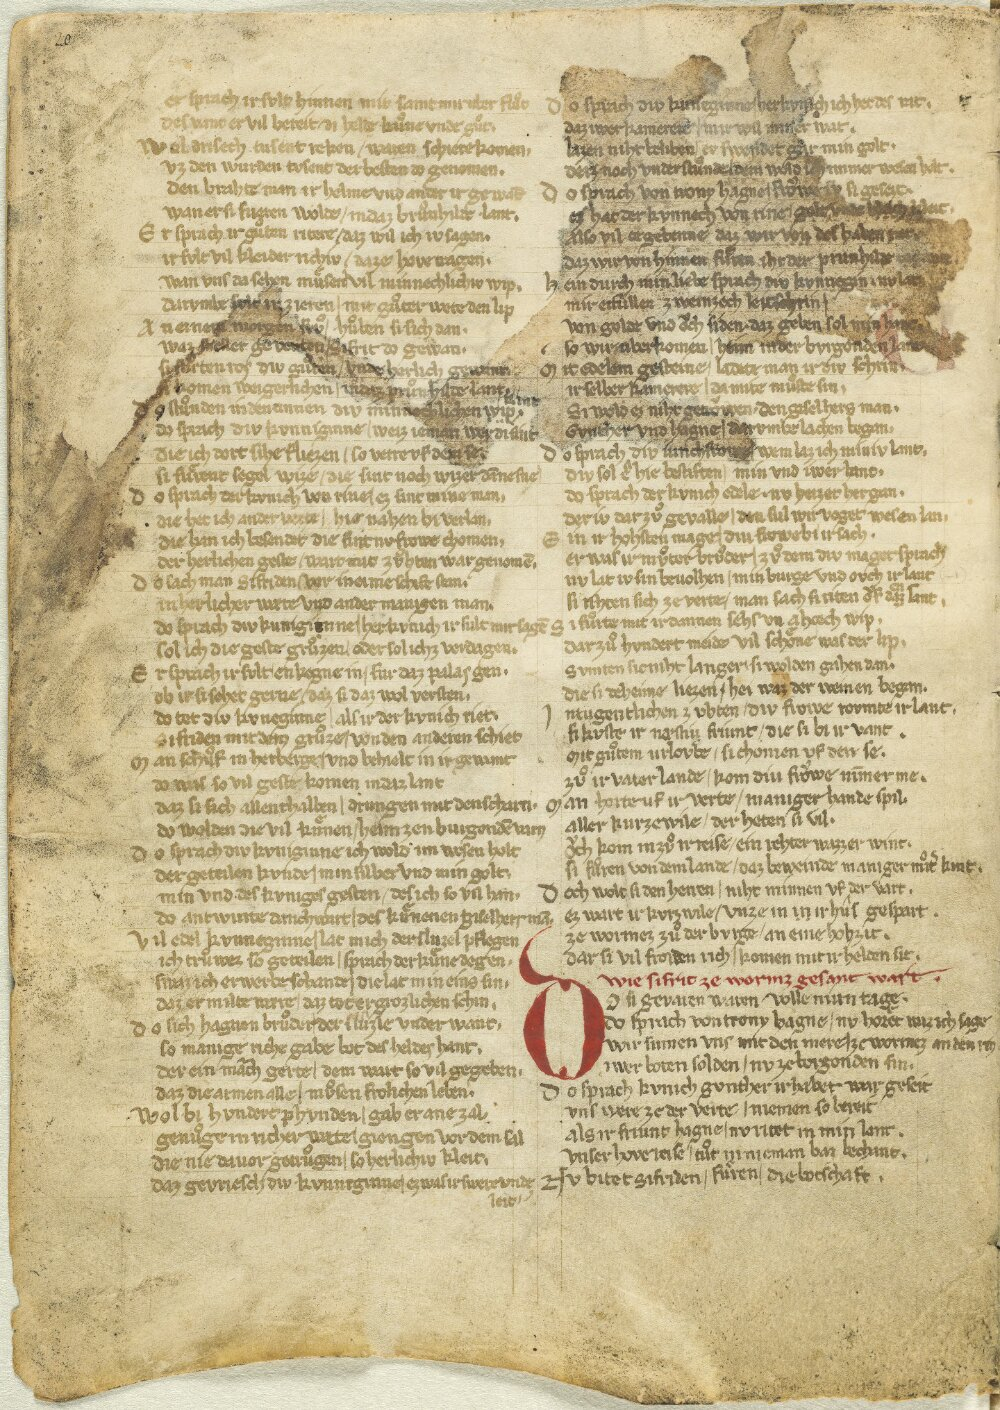 er sprach ir svlt hinnen mir samt mir vber flůt
des wart er vil bereit di helde kůne vnde gůt.
Wol drisech tusent reken / waren schiere komen.
vz den wurden tvsent der besten do genomen.
Den brahte man ir helme vnd ander ir gewant
wan er si furen wolde / in daz brůnhilde lant.
Er sprach ir gůten ritere / daz wil ich iv sagen.
ir svlt vil kleider richiv / da ze hove tragen.
wan vns da sehen můsen vil minnechlichiv wip.
darvmbe svlt ir zieren / mit gůter wete den lip
An einem morgen frv / hůben si sich dan.
waz sneller geverten / Sifrit do gewan.
si fůrten ros div gůten / vnde herlich gewant
si komen weigerlichen / in daz prunhilte lant.
Do stůnden in den cinnen div minnechlichen kint
do sprach div kvniginne / weiz ieman wer di sint
Die ich dort sihe fliezen / so verre vf dem se.
si fůrent segel wize / die sint noch wizer danne sne
Do sprach der kvnich von rine / ez sint mine man.
die het ich an der verte / hie nahen bi verlan.
die han ich besendet die sint nv frowe chomen.
der herlichen geste / wart mit zvhten war genomē.
Do sach man Sifriden / vor in eime schiffe stan.
in herlicher wete vnd ander manigen man.
do sprach div kuniginne / her kvnich ir sult mir sagē
sol ich die geste grůzen / oder sol ichz verdagen.
Er sprach ir svlt en kegne in / fur daz palas gen.
ob ir si sehet gerne / daz si daz wol versten.
do tet div kvneginne / als ir der kvnich riet.
Sifriden mit dem grůze / von den anderen schiet
Man schůf in herberge / vnd behielt in ir gewant
do was so vil geste komen in daz lant
daz si sich allenthalben / drungen mit den scharn.
do wolden die vil kůnen / heim zen burgonden varn
Do sprach div kvniginne ich wold im wesen holt
der geteilen kvnde / min silber vnd min golt.
min vnd des kvniges gesten / des ich so vil han.
do antwurte danchwart / des kůnenen giselheres man.
Vil edel kvuneginne / lat mich der sluzel pflegen
ich trůwez so geteilen / sprach der kůne degen.
swaz ich erwerbe schande / die lat min eins sin.
daz er milte were / daz tet er grozlichen schin.
Do sich hagnen brůder der sluzle vnder want,
so manige riche gabe bot des heldes hant.
der ein march gerte / dem wart so vil gegeben.
daz die armen alle / můsen frolichen leben.
Wol bi hvndert phvnden / gab er ane zal.
genůge in richer wete / giengen vor dem sal
die nie davor getrůgen / so herlichiv kleit.
daz gevriesch div kvniginne / ez was ir swere vnde
leit
Do sprach div kuneginne her kvnich ich het des rat.
daz iwer kamerere / mir wil miner wat.
lazen niht beliben / er swendet gar min golt.
derz noch vnderstůnde / dem wold ich immer wesen holt.
Do sprach von trony hagne / frowe iv si geseit.
ez hat der kvnnech von rine / golt vnde kleit.
also vil ze gebenne daz wir von des haben rat.
daz wir von hinnen fůren iht der prunhilde
Nein durch min liebe sprach div kvnnegin nv lat
mir erfullen zweinzech leitschrin /
von golde vnd och siden. daz geben sol min hant.
so wir vberkomen / heim in der byrgonden lant.
Mit edelem gesteine / ladete man ir div schrin.
ir selber kamerere / da mite můste sin.
Si wold ez niht getrowen / den giselhers man.
Gvnther vnd hagne / darvmbe lachen began.
Do sprach div iunchfrowe / wem laz ich miniv lant.
div sol e hie bestiften / min vnd iwer hant.
do sprach der kvnich edele. nv heizet her gan.
der iv dar zů gevalle / den sul wir voget wesen lan.
Ein ir hohsten mage / div frowe bi ir sach.
er was ir můter brůder / zů dem div maget sprach
nv lat iv sin bevolhen / min burge vnd ovch ir lant
si rihten sich ze verte / man sach si riten vf den sant.
Si fůrte mit ir dannen sehs vn ahcech wip.
dar zů hvndert meide vil schone was der lip.
Svmten sie niht langer. si wolden gahen dan.
die si daheime liezen / hei waz der weinen began.
In tugentlichen zvhten / div frowe rovmte ir lant.
si kvste ir næsten friunt / die si bi ir vant.
mit gůtem urlovbe / si chomen vf den se.
zů ir vater lande / kom div frowe nimmer me.
Man horte vf ir verte / maniger hande spil.
aller kurzewile / der heten si vil.
Och kom in zů ir reise / ein rehter wazzer wint.
si fůren von dem lande / daz beweinde maniger můter kint.
Doch wolt si den herren / niht minnen vf der vart.
ez wart ir kvrzwile / vnze in in ir hůs gespart.
ze wormez zů der bvrge / an eine hohzit.
dar si vil froiden rich / komen mit ir helden sit.
wie sifrit ze wormz gesant wart
Do si gevaren waren volle niun tage.
do sprach von trony hagne / nv hoeret waz ich sage
wir sůmen vns mit den mere / ze wormez an den rin
iwer boten solden / nv ze bvrgonden sin.
Do sprach kvnich gvnther ir habet war geseit
vns were ze der verte / niemen so bereit
als ir friunt hagne / nv ritet in min lant.
vnser hove reise / tůt in nieman baz bechant.
Nv bitet sifriden / fůren / die botschaft.